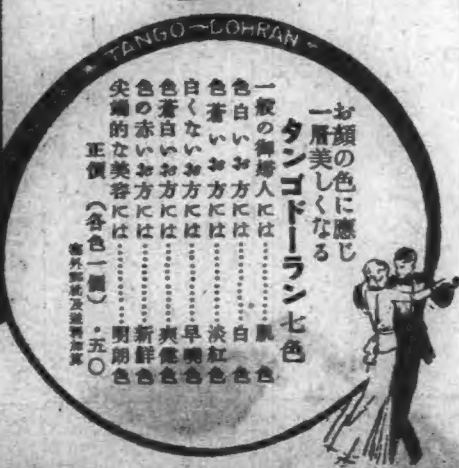 TANGO-DOHRAN
お顔の色に應じ
一層美しくなる
タンゴドーラン七色
一般の御婦人には…………肌色
色白いお方には…………白色
色蒼いお方には…………淡紅色
白くないお方には…………早暁色
色蒼白いお方には…………爽健色
色の赤いお方には…………新鮮色
尖端的な美容には…………明朗色
正價（各色一個）・五〇